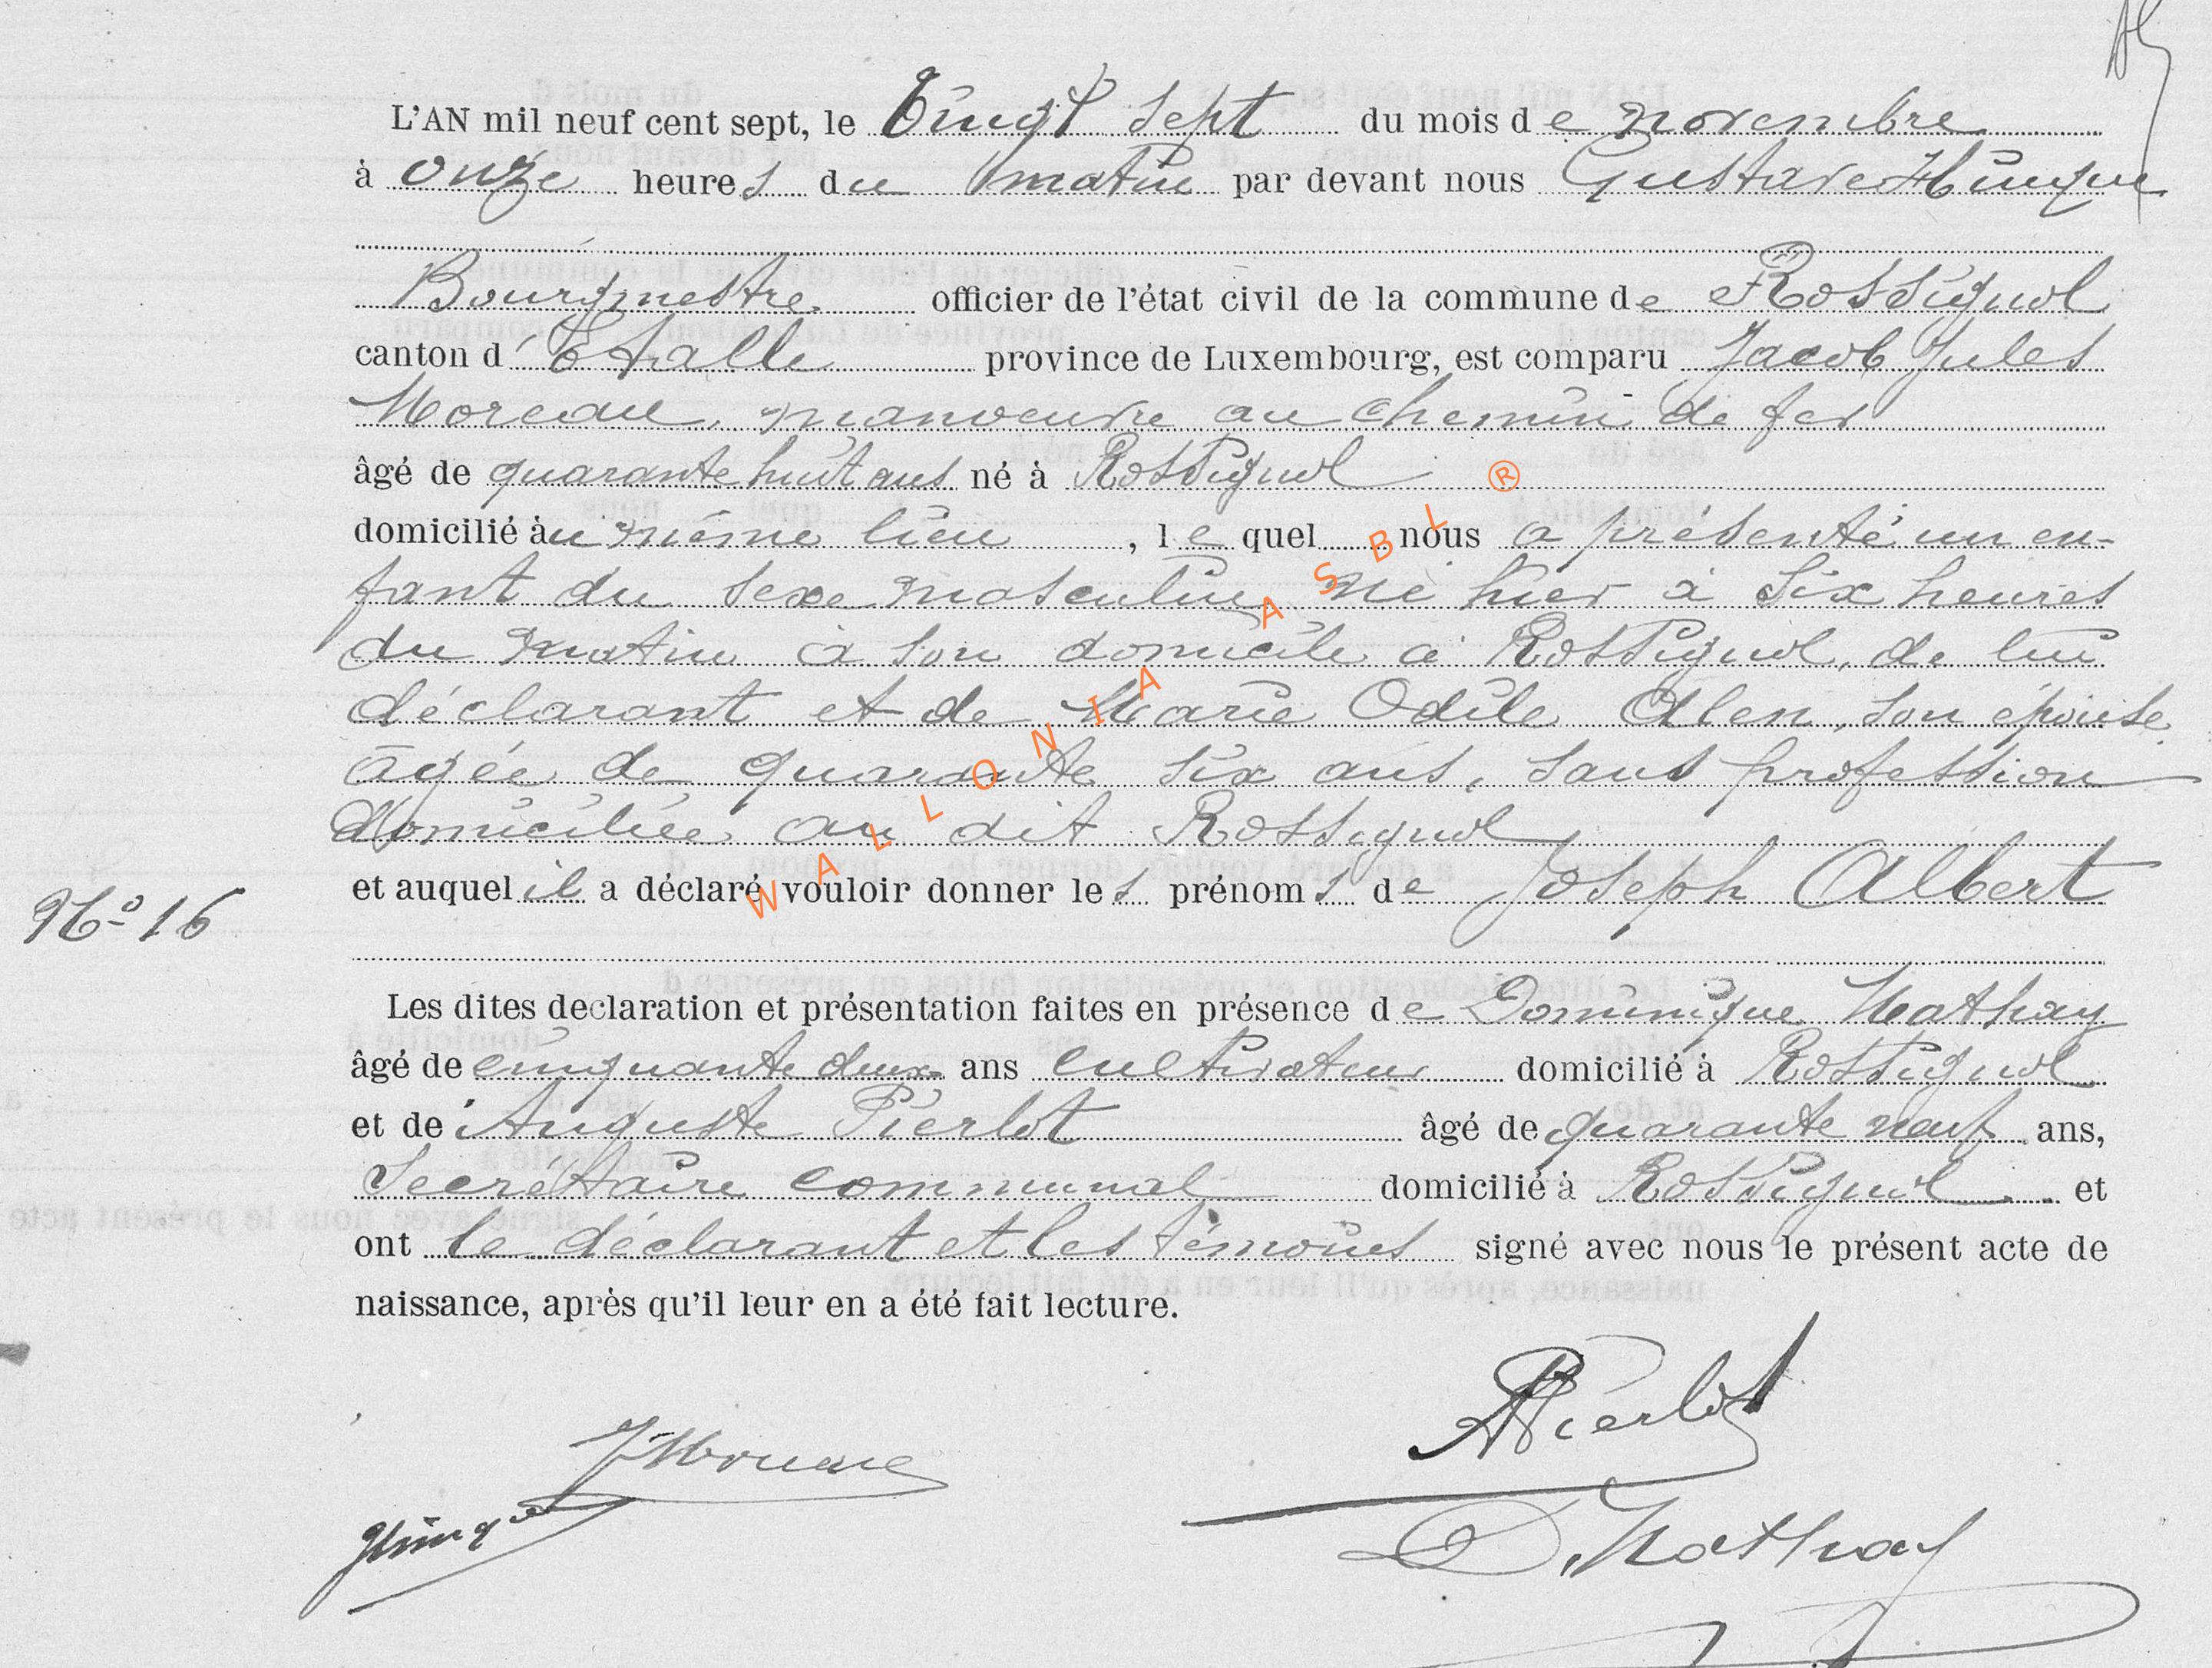 L'AN mil neuf cent sept, le Vingt sept du mois de novembre
à onze heures du matin par devant nous Gustave Hinque
Bourgmestre officier de l'état civil de la commune de Rossignol
canton d'Etalle province de Luxembourg, est comparu Jacob Jules
Moreau, manoeuvre au chemin de fer
âgé de quarante huit ans né à Rossignol
domicilié au même lieu, lequel nous a présenté un en-
fant du sexe masculin, né hier à six heures
du matin à son domicile à Rossignol, de lui
déclarant et de Marie Odile Alen, son épouse
âgée de quarante six ans, sans profession
domiciliée au dit Rossignol
et auquel il a déclaré vouloir donner les prénoms de Joseph Albert
No 16
Les dites declaration et présentation faites en présence de Dominique Mathay
âgé de cinquante deux ans cultivateur domicilié à Rossignol
et de Auguste Pierlot âgé de quarante neuf ans,
Secrétaire communal domicilié à Rossignol et
ont le déclarant et les témoins signé avec nous le présent acte de
naissance, après qu'il leur en a été fait lecture.
APierlot
JMoreau
GHinque
D. Mathay
WALLONIA ASBL ®